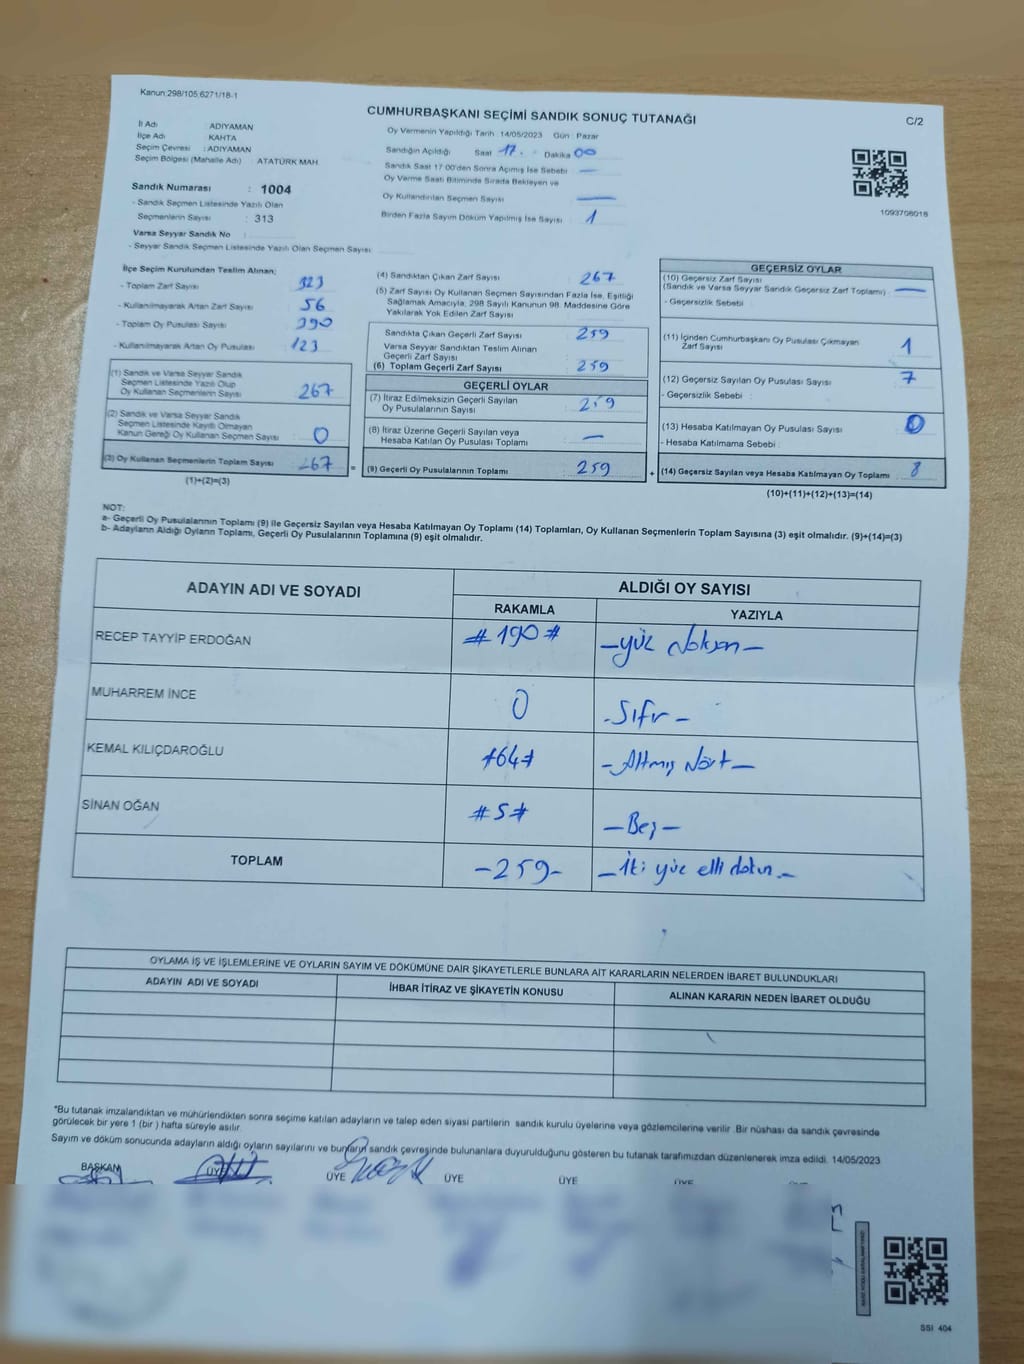 Kanun:298/105;6271/18-1
CUMHURBAŞKANI SEÇİMİ SANDIK SONUÇ TUTANAĞI
C/2
İl Adı : ADIYAMAN
İlçe Adı : KAHTA
Seçim Çevresi : ADIYAMAN
Seçim Bölgesi (Mahalle Adı) ATATÜRK MAH
Sandık Numarası : 1004
- Sandık Seçmen Listesinde Yazılı Olan
Seçmenlerin Sayısı : 313
Varsa Seyyar Sandık No :
- Seyyar Sandık Seçmen Listesinde Yazılı Olan Seçmen Sayısı:
Oy Vermenin Yapıldığı Tarih :14/05/2023 Gün : Pazar
Sandığın Açıldığı Saat 17. Dakika 00
Sandık Saat 17:00'den Sonra Açılmış İse Sebebi —
Oy Verme Saati Bitiminde Sırada Bekleyen ve
Oy Kullandırılan Seçmen Sayısı —
Birden Fazla Sayım Döküm Yapılmış İse Sayısı : 1
1093708018
İlçe Seçim Kurulundan Teslim Alınan;
- Toplam Zarf Sayısı : 323
- Kullanılmayarak Artan Zarf Sayısı : 56
- Toplam Oy Pusulası Sayısı : 390
- Kullanılmayarak Artan Oy Pusulası : 123
(1) Sandık ve Varsa Seyyar Sandık
Seçmen Listesinde Yazılı Olup
Oy Kullanan Seçmenlerin Sayısı : 267
(2) Sandık ve Varsa Seyyar Sandık
Seçmen Listesinde Kayıtlı Olmayan
Kanun Gereği Oy Kullanan Seçmen Sayısı : 0
(3) Oy Kullanan Seçmenlerin Toplam Sayısı : 267
(1)+(2)=(3)
=
(4) Sandıktan Çıkan Zarf Sayısı : 267
(5) Zarf Sayısı Oy Kullanan Seçmen Sayısından Fazla İse, Eşitliği
Sağlamak Amacıyla, 298 Sayılı Kanunun 98. Maddesine Göre
Yakılarak Yok Edilen Zarf Sayısı :
Sandıkta Çıkan Geçerli Zarf Sayısı : 259
Varsa Seyyar Sandıktan Teslim Alınan
Geçerli Zarf Sayısı :
(6) Toplam Geçerli Zarf Sayısı : 259
GEÇERLİ OYLAR
(7) İtiraz Edilmeksizin Geçerli Sayılan
Oy Pusulalarının Sayısı : 259
(8) İtiraz Üzerine Geçerli Sayılan veya
Hesaba Katılan Oy Pusulası Toplamı : —
(9) Geçerli Oy Pusulalarının Toplamı : 259
+
GEÇERSİZ OYLAR
(10) Geçersiz Zarf Sayısı
(Sandık ve Varsa Seyyar Sandık Geçersiz Zarf Toplamı) : —
- Geçersizlik Sebebi :
(11) İçinden Cumhurbaşkanı Oy Pusulası Çıkmayan
Zarf Sayısı : 1
(12) Geçersiz Sayılan Oy Pusulası Sayısı : 7
- Geçersizlik Sebebi :
(13) Hesaba Katılmayan Oy Pusulası Sayısı : 0
- Hesaba Katılmama Sebebi :
(14) Geçersiz Sayılan veya Hesaba Katılmayan Oy Toplamı : 8
(10)+(11)+(12)+(13)=(14)
NOT:
a- Geçerli Oy Pusulalarının Toplamı (9) ile Geçersiz Sayılan veya Hesaba Katılmayan Oy Toplamı (14) Toplamları, Oy Kullanan Seçmenlerin Toplam Sayısına (3) eşit olmalıdır. (9)+(14)=(3)
b- Adayların Aldığı Oyların Toplamı, Geçerli Oy Pusulalarının Toplamına (9) eşit olmalıdır.
ADAYIN ADI VE SOYADI ALDIĞI OY SAYISI
RAKAMLA YAZIYLA
RECEP TAYYİP ERDOĞAN #190# -yüz doksan-
MUHARREM İNCE 0 -Sıfır-
KEMAL KILIÇDAROĞLU #64# -Altmış dört-
SİNAN OĞAN #5# -Beş-
TOPLAM -259- -İki yüz elli dokuz-
OYLAMA İŞ VE İŞLEMLERİNE VE OYLARIN SAYIM VE DÖKÜMÜNE DAİR ŞİKAYETLERLE BUNLARA AİT KARARLARIN NELERDEN İBARET BULUNDUKLARI
ADAYIN ADI VE SOYADI İHBAR İTİRAZ VE ŞİKAYETİN KONUSU ALINAN KARARIN NEDEN İBARET OLDUĞU
*Bu tutanak imzalandıktan ve mühürlendikten sonra seçime katılan adayların ve talep eden siyasi partilerin sandık kurulu üyelerine veya gözlemcilerine verilir .Bir nüshası da sandık çevresinde
görülecek bir yere 1 (bir ) hafta süreyle asılır.
Sayım ve döküm sonucunda adayların aldığı oyların sayılarını ve bunların sandık çevresinde bulunanlara duyurulduğunu gösteren bu tutanak tarafımızdan düzenlenerek imza edildi. 14/05/2023
BAŞKAN ÜYE ÜYE ÜYE ÜYE ÜYE
SSI 404